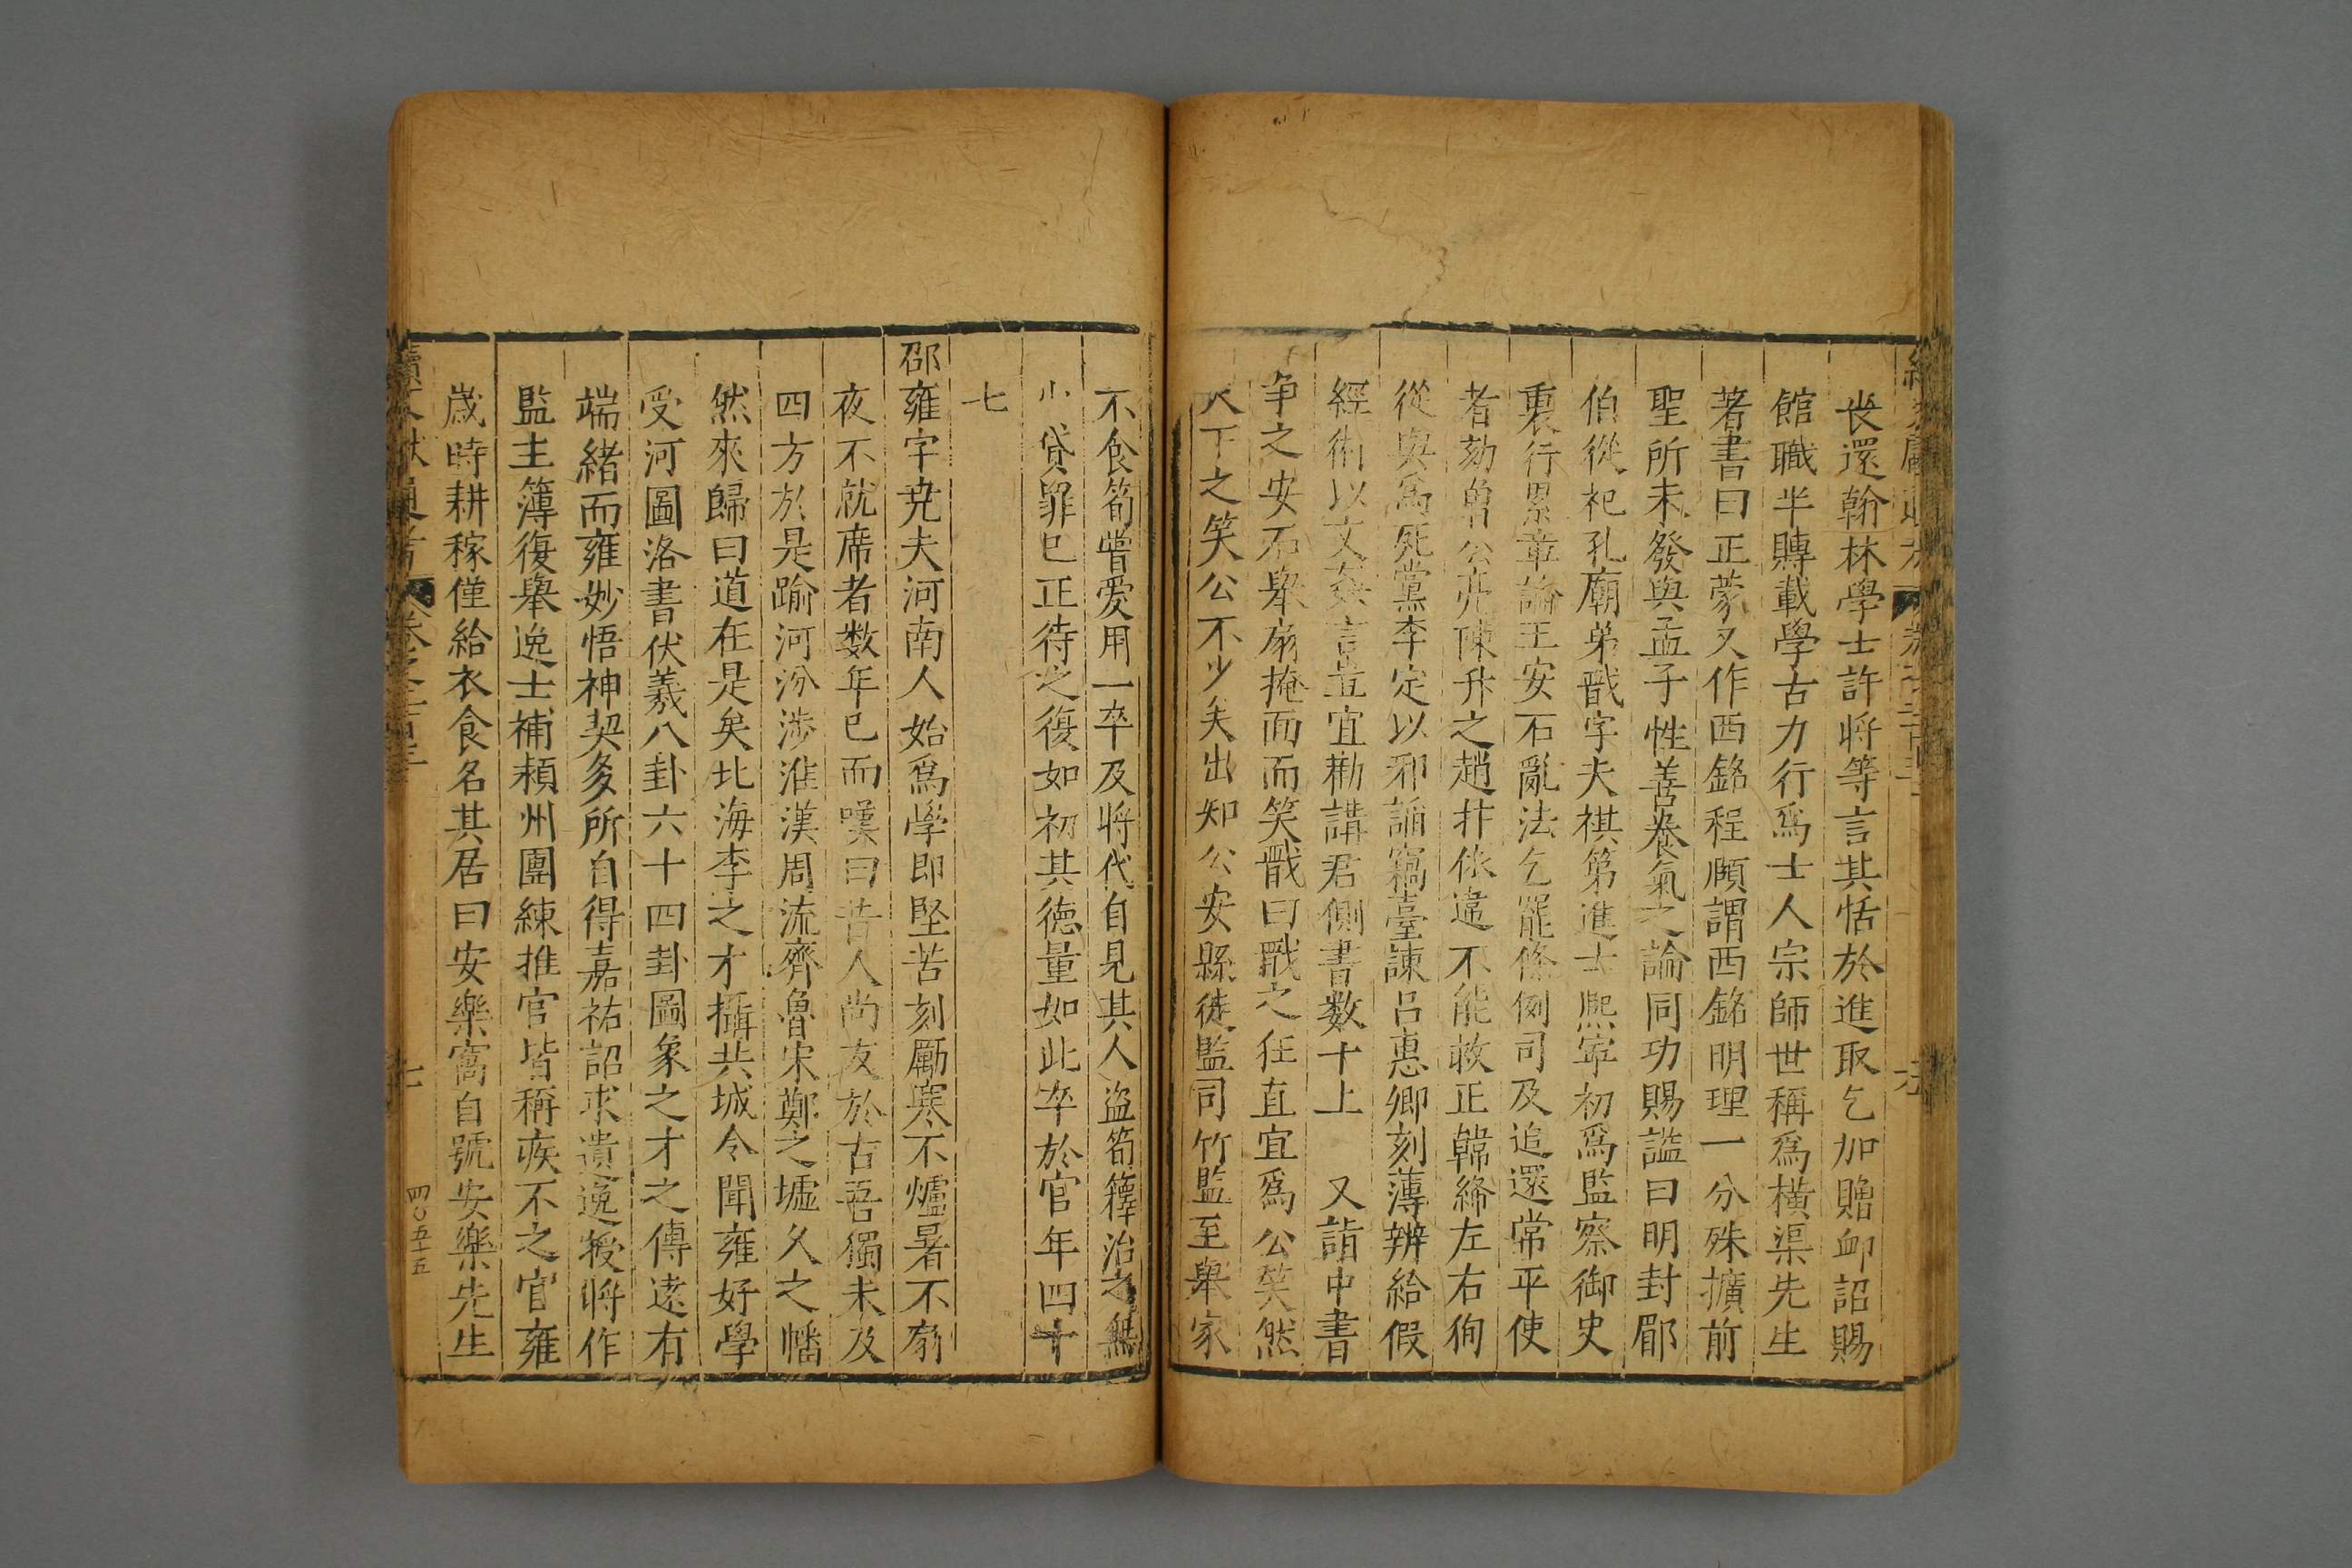 喪還翰林學士許將等言其恬於進取乞加贈卹詔賜
館職半賻載學古力行爲士人宗師世稱爲橫渠先生
著書曰正蒙又作西銘程頤謂西銘明理一分殊擴前
聖所未發與孟子性善養氣之論同功賜謚曰明封郿
伯從祀孔廟弟戩字夫祺第進士熙寧初爲監察御史
裏行累章論王安石亂法乞罷條例司及追還常平使
者劾曾公亮陳升之趙抃依違不能救正韓絳左右徇
從與爲死黨李定以邪諂竊臺諫呂惠卿刻薄辨給假
經術以文姦言豈宜勸講君側書数十上 又詣中書
争之安石舉扇掩面而笑戩曰戩之狂直宜爲公笑然
天下之笑公不少矣出知公安縣徒監司竹監至舉家
不食筍嘗愛用一卒及將代自見其人盜筍籜治之無
少貸罪已正待之復如初其德量如此卒於官年四十
七
邵雍字尭夫河南人始爲學即堅苦刻勵寒不爐暑不扇
夜不就席者数年已而嘆曰昔人尚友於古吾獨未及
四方於是踰河汾涉淮漢周流齊魯宋鄭之墟久之幡
然來歸曰道在是矣北海李之才攝共城令聞雍好學
受河圖洛書伏羲八卦六十四卦圖象之才之傳遠有
端緒而雍妙悟神契多所自得嘉祐詔求遺逸授將作
監主簿復舉逸士補穎州團練推官皆稱疾不之官雍
歲時耕稼僅給衣食名其居曰安樂窩自號安樂先生
四〇五十五